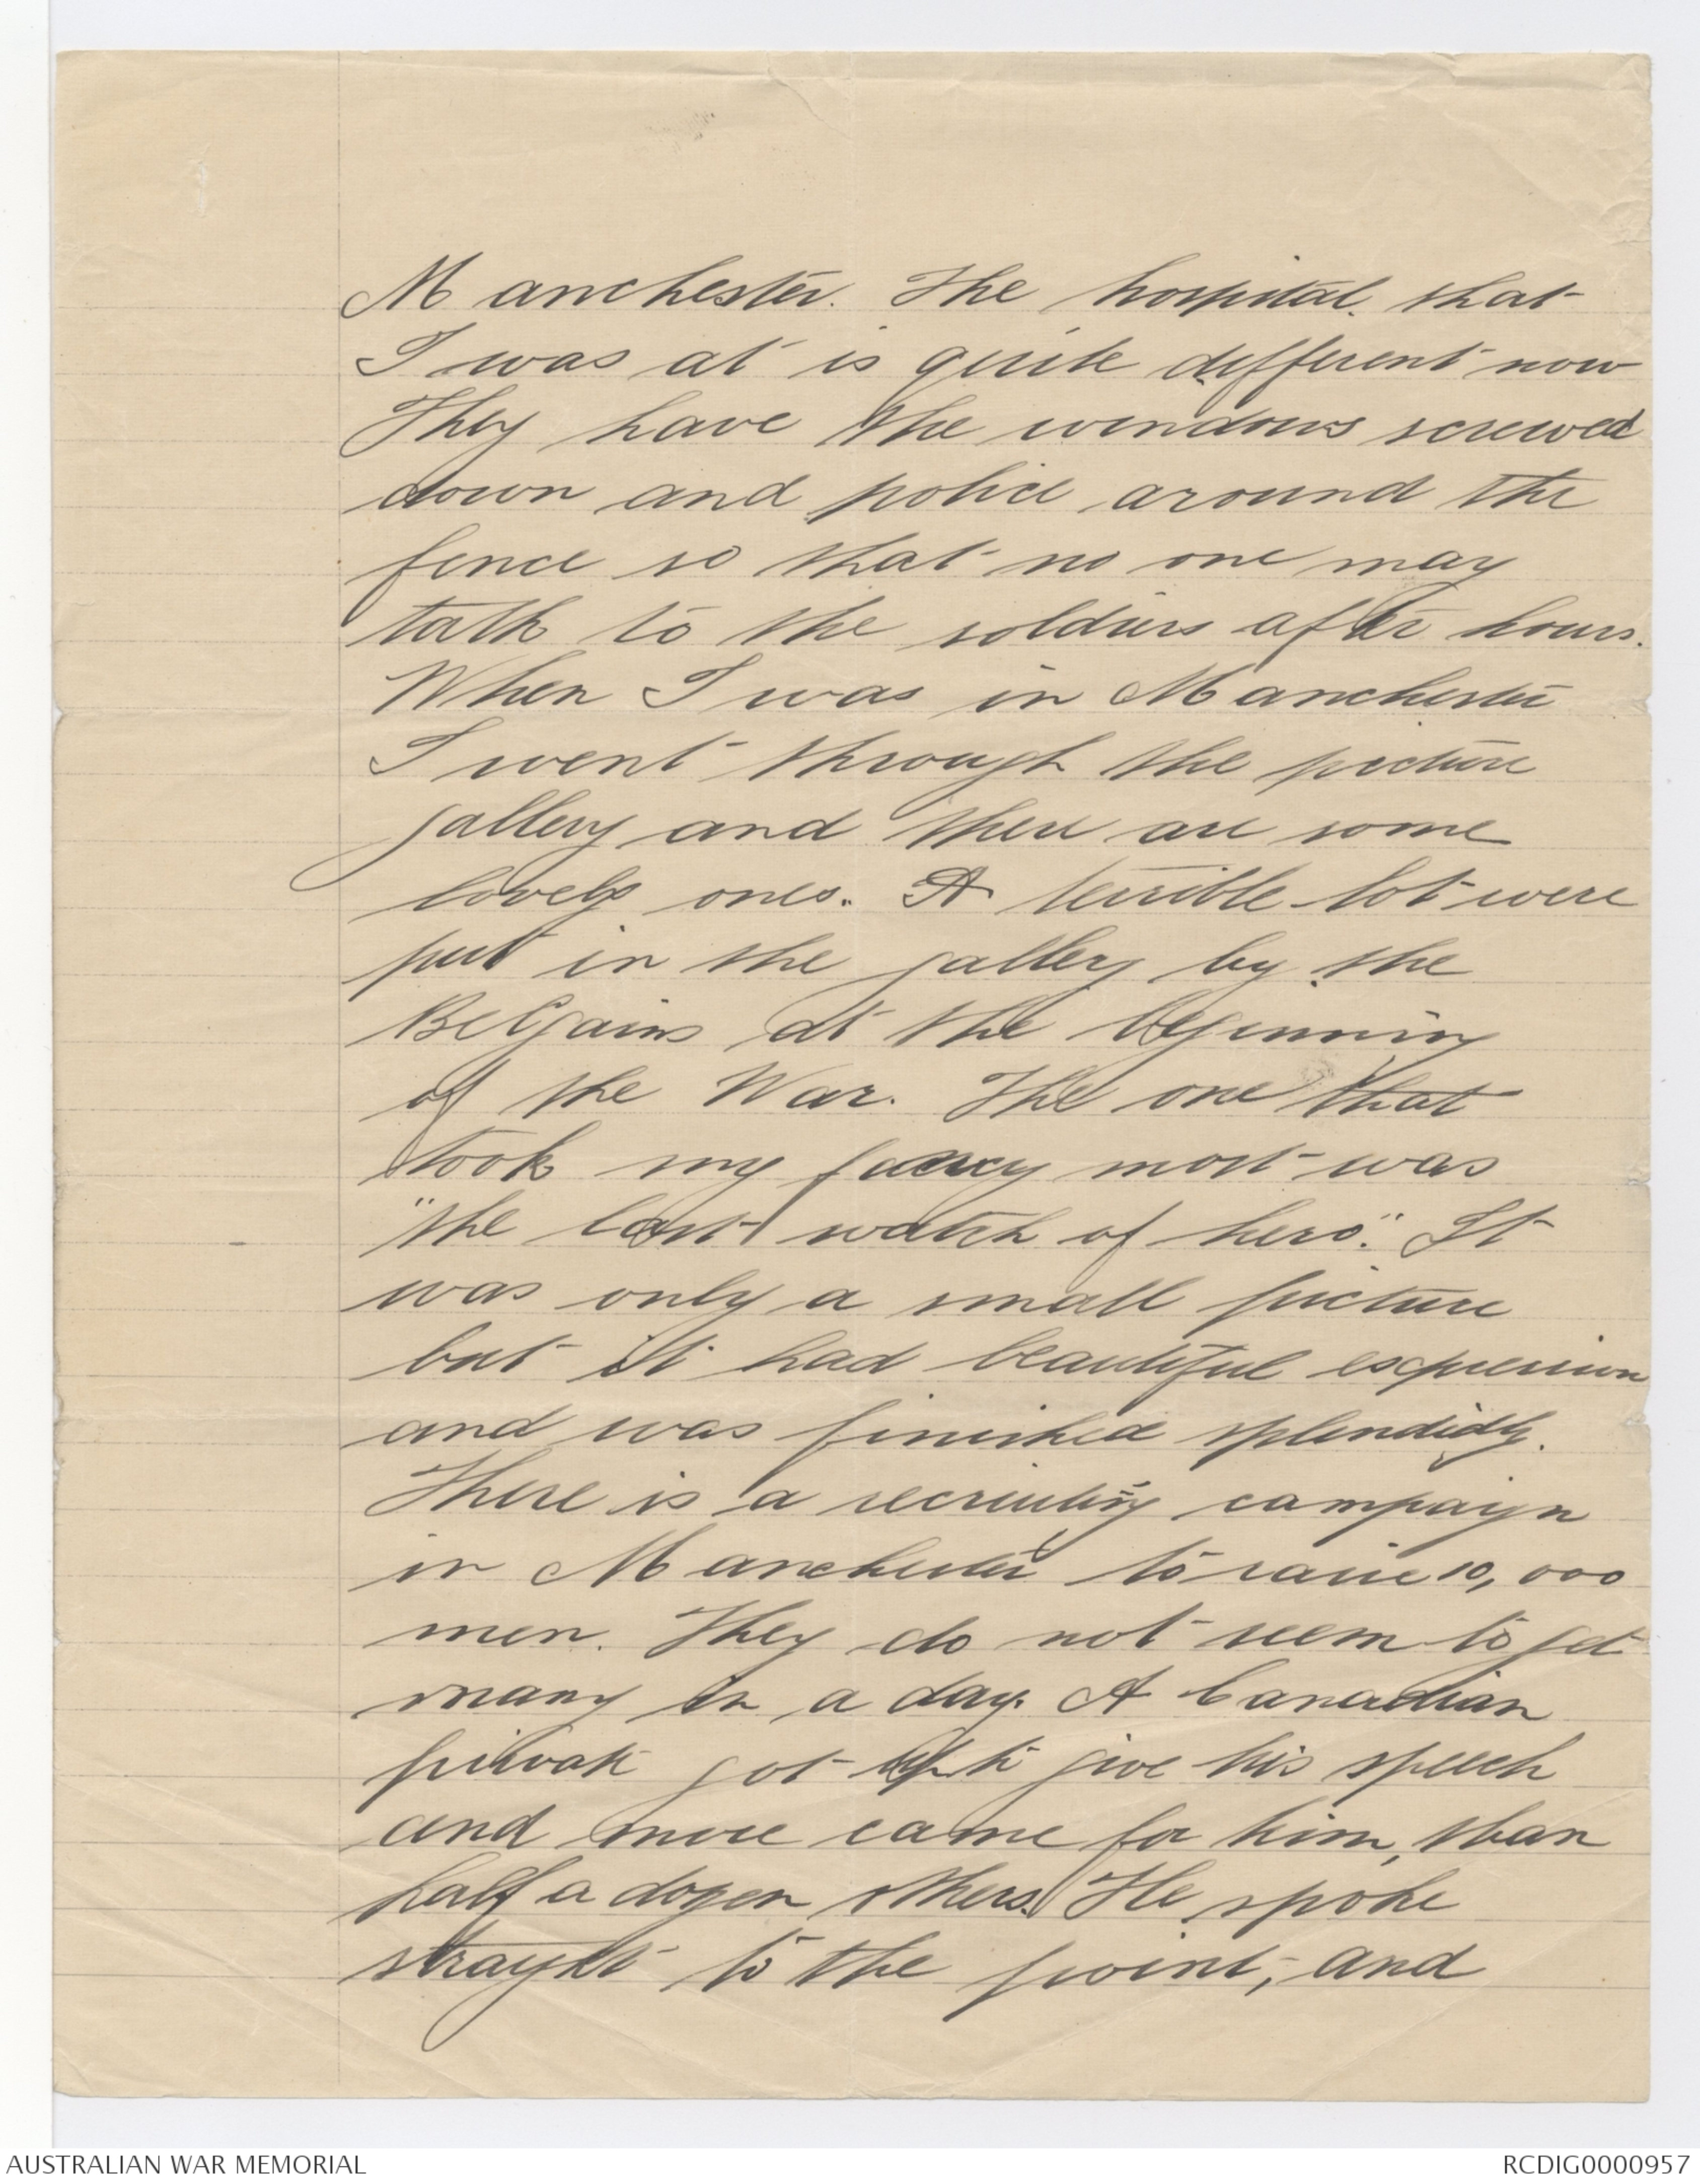 Manchester. The hospital that
I was at is quite different now
They have the windows screwed
down and police around the
fence so that no one may
talk to the soldiers after hours.
When I was in Manchester
I went through the picture
gallery and there are some
lovely ones. A terrible lot were
put in the gallery by the
Belgains at the beginning
of the War. The one that
took my fancy most was
"the last watch of hero". It
was only a small picture
but it had beautiful expression
and was finished splendidly.
There is a recruiting campaign
in Manchester to raise 10,000
men. They do not seem to get
many in a day. A Canadian
private got up to give his speech
and more came for him, than
half a dozen others. He spoke
strayht to the point, and
AUSTRALIAN WAR MEMORIAL
RCDIG0000957